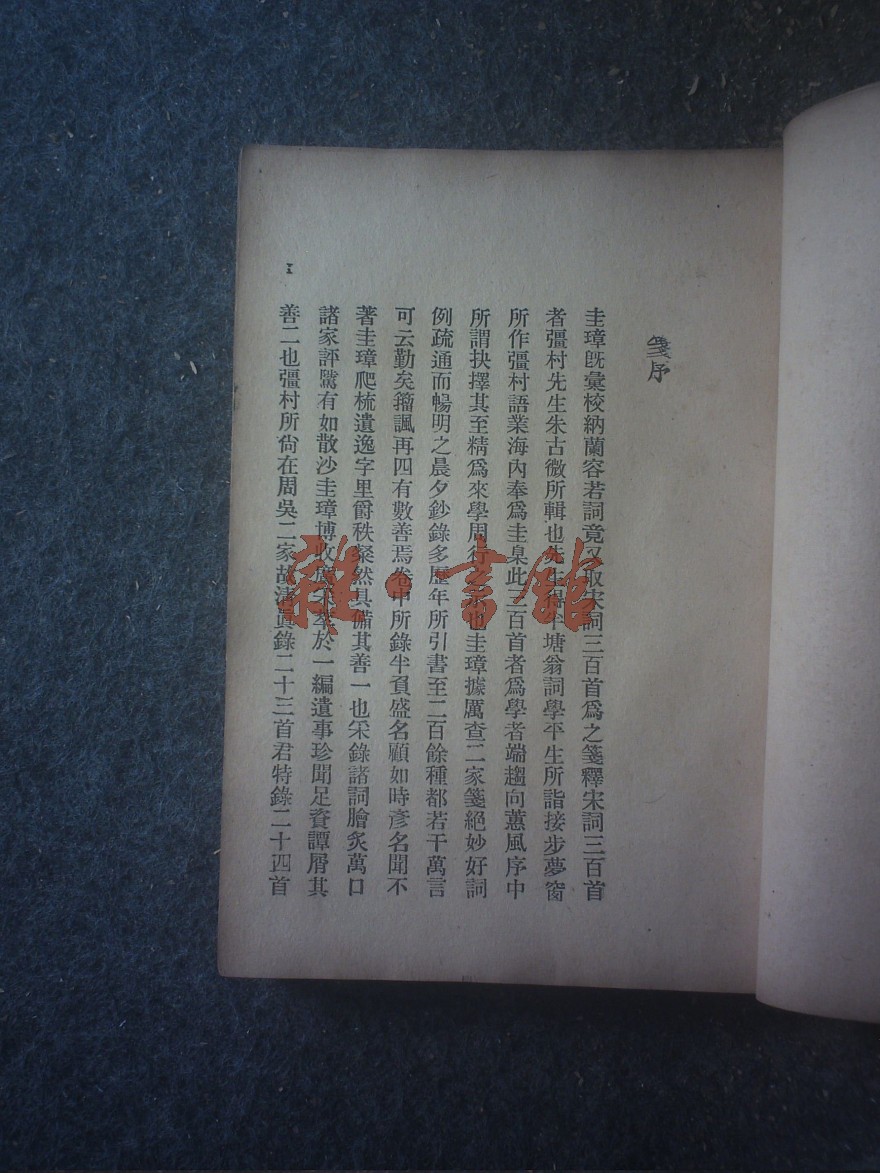 箋序
圭璋旣彙校納蘭容若詞竟又取宋詞三百首爲之箋釋宋詞三百首
者彊村先生朱古微所輯也先生得半塘翁詞學平生所詣接步夢窗
所作彊村語業海內奉爲圭臬此三百首者爲學者端趨向蕙風序中
所謂抉擇其至精爲來學周行也圭璋據厲查二家箋絕妙好詞
例疏通而暢明之晨夕鈔錄多歷年所引書至二百餘種都若干萬言
可云勤矣籀諷再四有數善焉卷中所錄半負盛名顧如時彥名聞不
著圭璋爬梳遺逸字里爵秩粲然具備其善一也采錄諸詞膾炙萬口
諸家評騭有如散沙圭璋博收廣采萃於一編遺事珍聞足資譚屑其
善二也彊村所尙在周吳二家故清眞錄二十三首君特錄二十四首
I
雜·書館